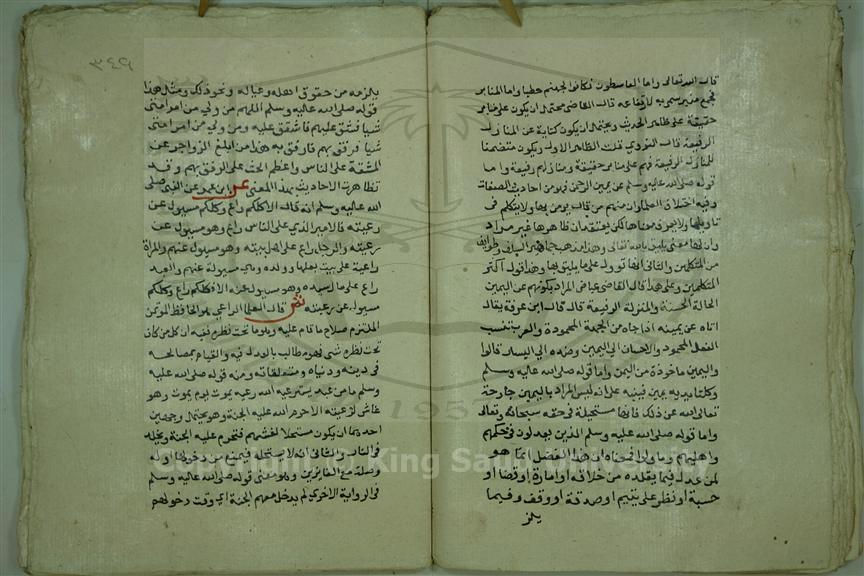 قال الله تعالى واما القاسطون فكانوا لجهنم حطبا واما المنابر
فجمع منبر سمي به لارتفاعه قال القاضي يحتمل ان يكون على منابر
حقيقة على ظاهر الحديث ويحتمل ان يكون كناية عن المنازل
الرفيعة قال النووي قلت الظاهر الاول ويكون متضمنا
للمنازل الرفيعة فهم على منابر حقيقة ومنازلهم رفيعة واما
قوله صلى الله عليه وسلم عن يمين الرحمن فهو من احاديث الصفات
وفيه اختلاف العلما وان منهم من قال يومن بها ولا يتكلم في
تاويلها ولا يعرف معناها لكن يعتقد ان ظاهرها غير مراد
وان لها معنى يليق بالله تعالى وهذا مذهب جماهير السلف وطوايف
من المتكلمين والثاني انها تؤول على ما يليق بها وهذا قول اكثر
المتكلمين وعلى هذا قال القاضي عياض المراد بكونهم عن اليمين
الحالة الحسنة والمنزلة الرفيعة قال قال ابن عرفة يقال
اتاه عن يمينه اذا جاه من الجهة المحمودة والعرب تنسب
الفعل المحمود والاحسان الى اليمين وضده الى اليسار قالوا
واليمين ماخوذة من اليمن واما قوله صلى الله عليه وسلم
وكلتا يديه يمين فينبه على انه ليس المراد باليمين جارحة
تعالى الله عن ذلك فانها مستحيلة في حقه سبحانه وتعالى
واما قوله صلى الله عليه وسلم الذين يعدلون في حكمهم
واهليهم وما ولوا فمعناه ان هذا الفضل انما هو
لمن عدل فيما يقلده من خلافة او امارة او قضا او
حسبة او نظر على يتيم او صدقة او وقف وفيما
يلز
٣٤٩
يلزمه من حقوق اهله وعياله ونحو ذلك ومثل هذا
قوله صلى الله عليه وسلم اللهم من ولي من امر امتي
شيا فشق عليهم فاشقق عليه ومن ولي من امر امتي
شيا فرفق بهم فارفق به هذا من ابلغ الزواجر عن
المشقة على الناس واعظم الحث على الرفق بهم وقد
تظاهرت الاحاديث بهذا المعنى عن ابن عمر عن النبي صلى
الله عليه وسلم انه قال الا كلكم راع وكلكم مسيول عن
رعيته فالامير الذي على الناس راع وهو مسيول عن
رعيته والرجل راع على اهل بيته وهو مسيول عنهم والمراة
راعية على بيت بعلها وولده وهي مسيولة عنهم والعبد
راع على مال سيده وهو مسيول عنه الا فكلكم راع وكلكم
مسيول عن رعيته ش قال العلما الراعي هو الحافظ المؤتمن
الملتزم صلاح ما قام عليه وهو ما تحت نظره ففيه ان كل من كان
تحت نظره شي فهو مطالب بالعدل فيه والقيام بمصالحه
في دينه ودنياه ومتعلقاته ومنه قوله صلى الله عليه
وسلم ما من عبد يسترعيه الله رعية يموت يوم يموت وهو
غاش لرعيته الا حرم الله عليه الجنة وهو يحتمل وجهين
احدهما ان يكون مستحلا لغشهم فتحرم عليه الجنة ويخلد
في النار والثاني انه لا يستحله فيمنع من دخولها اول
وهلة مع الفايزين وهو معنى قوله صلى الله عليه وسلم
في الرواية الاخرى لم يدخل معهم الجنة اي وقت دخولهم
1957
Copyright © King Saud University